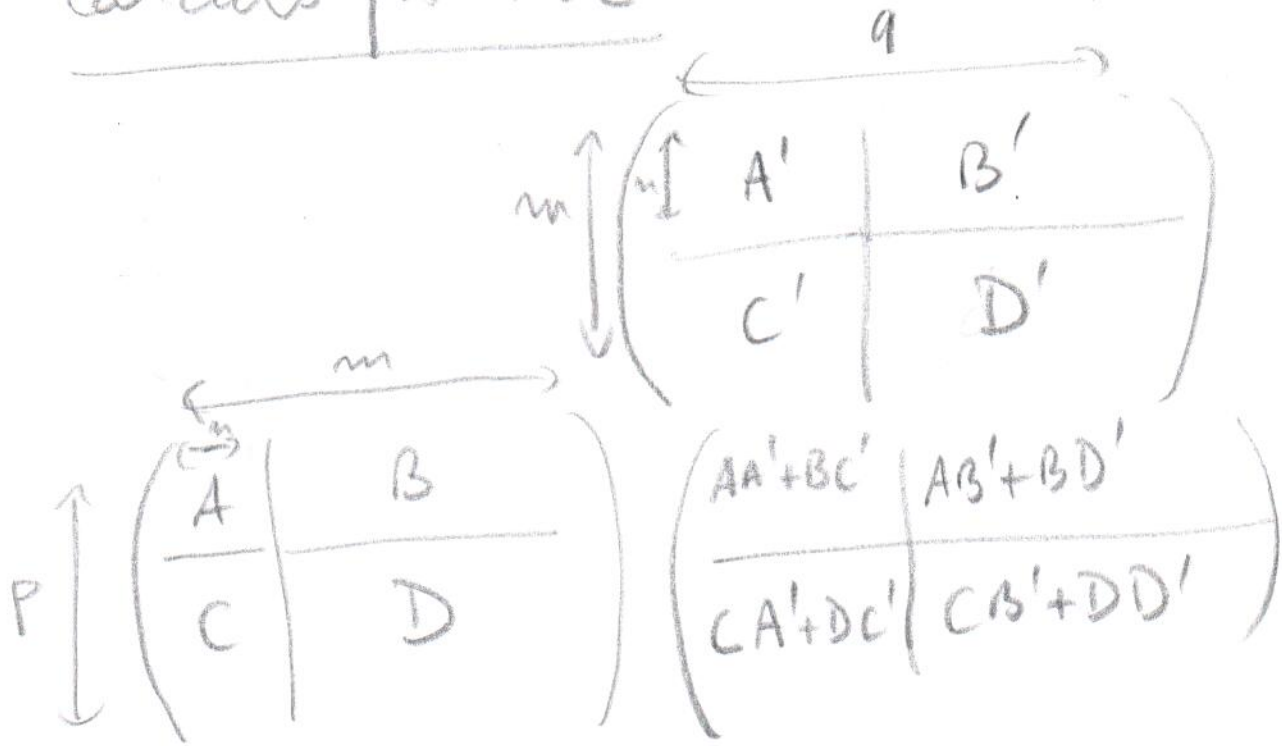 q
m n A' B'
C' D'
m
n
A B AA'+BC' AB'+BD'
P C D CA'+DC' CB'+DD'